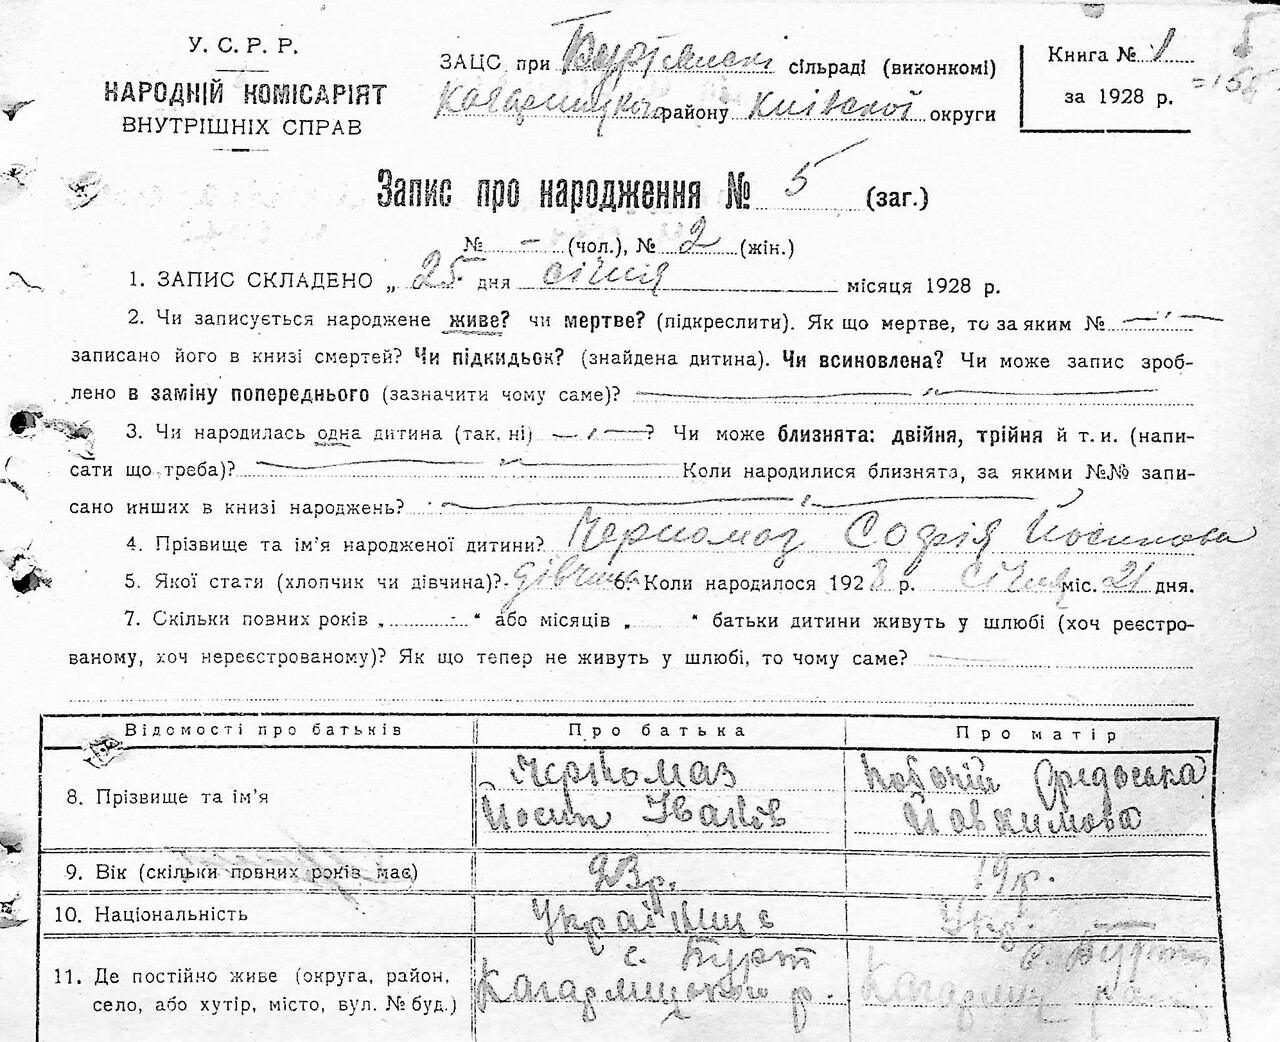 У. С. Р. Р.
НАРОДНІЙ КОМІСАРІЯТ
ВНУТРІШНІХ СПРАВ
ЗАЦС при Буртянскі сільраді (виконкомі)
Кагарлицького району Київської округи
Книга № 1
за 1928 р.
Запис про народження № 5 (заг.)
№ – (чол.), № 2 (жін.)
1. ЗАПИС СКЛАДЕНО „ 25 дня січня місяця 1928 р.
2. Чи записується народжене живе? чи мертве? (підкреслити). Як що мертве, то за яким №
записано його в книзі смертей? Чи підкидьок? (знайдена дитина). Чи всиновлена? Чи може запис зроб-
лено в заміну попереднього (зазначити чому саме)?
3. Чи народилась одна дитина (так, ні) ? Чи може близнята: двійня, трійня й т. и. (напи-
сати що треба)? Коли народилися близнята, за якими №№ запи-
сано инших в книзі народжень?
4. Прізвище та ім'я народженої дитини? Черномаз Софія Йосипова
5. Якої стати (хлопчик чи дівчина)? дівчина 6. Коли народилося 1928 р. січня міс. 21 дня.
7. Скільки повних років „ “ або місяців „ “ батьки дитини живуть у шлюбі (хоч реєстро-
ваному, хоч нереєстрованому)? Як що тепер не живуть у шлюбі, то чому саме?
Відомості про батьків Про батька Про матір
8. Прізвище та ім'я Черномаз Йосип Іванов Йовхимова
9. Вік (скільки повних років має) 23 р. 19 р.
10. Національність Українце Укр.
11. Де постійно живе (округа, район, с. Бурти с. Бурти
село, або хутір, місто, вул. № буд.) Кагарлицького р. Кагарлиц рай